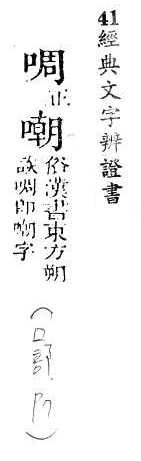 41經典文字辨證書
啁正
嘲俗漢書東方朔
詼啁卽嘲字
(口部.